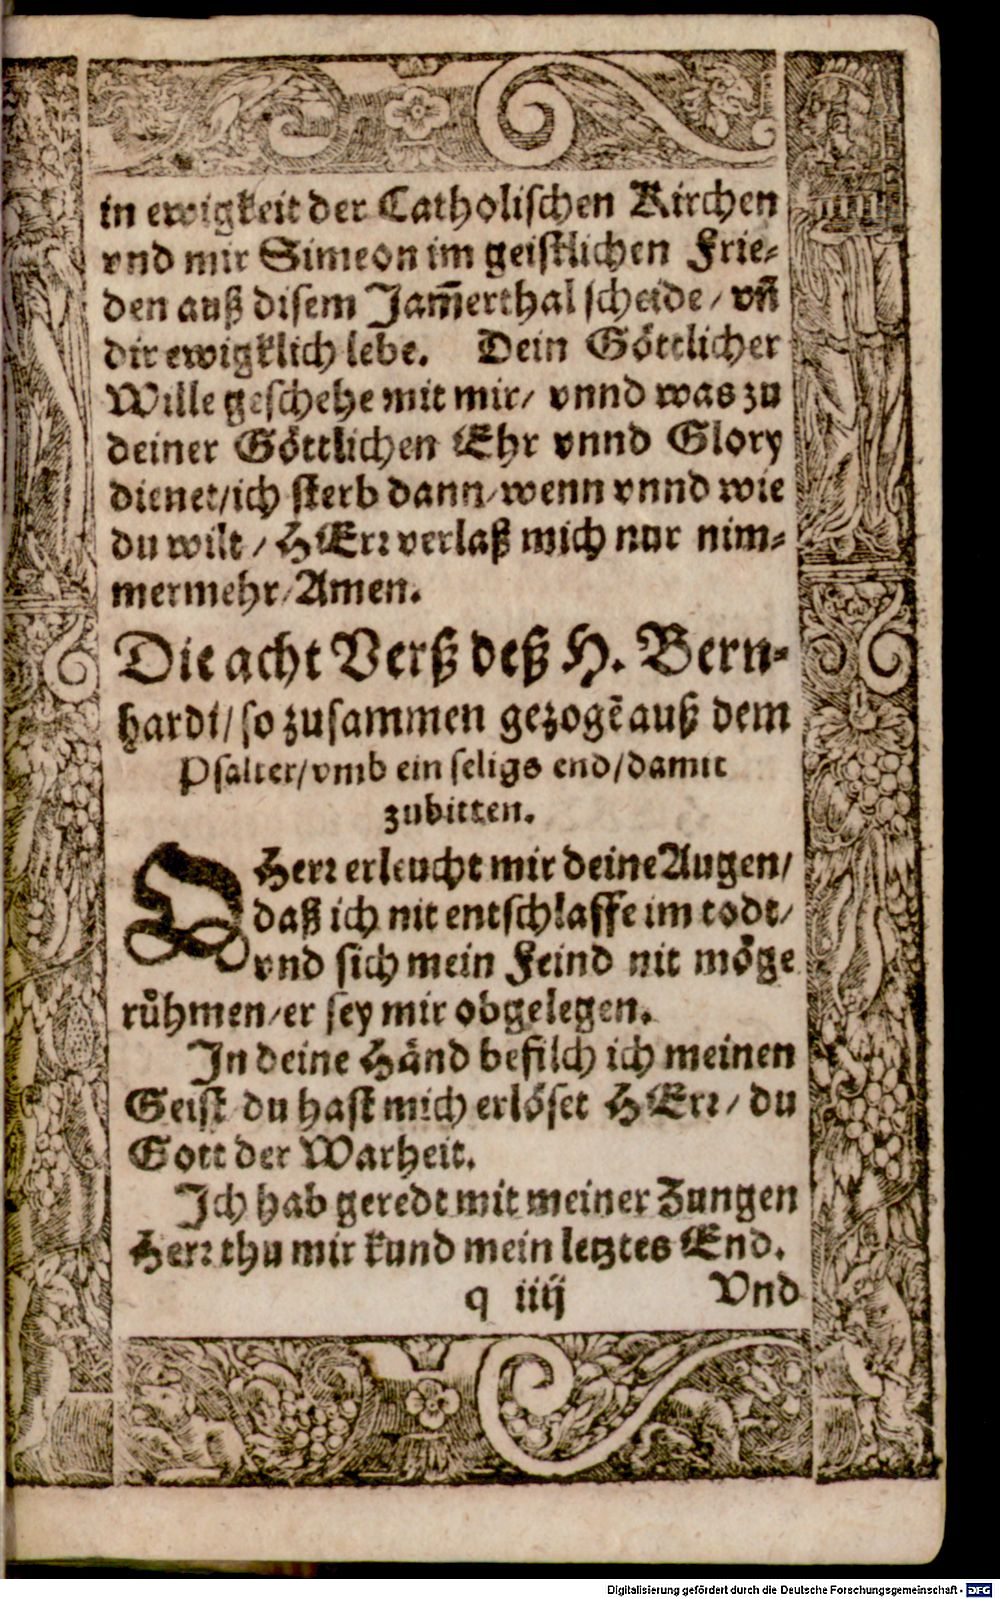 in ewigkeit der Catholischen Kirchen
vnd mir Simeon im geistlichen Frie-
den auß disem Jam̃erthal scheide/ vñ
dir ewigklich lebe. Dein Göttlicher
Wille geschehe mit mir/ vnnd was zu
deiner Göttlichen Ehr vnnd Glory
dienet/ich sterb dann/wenn vnnd wie
du wilt/ HErr verlaß mich nur nim-
mermehr/Amen.
Die acht Verß deß H. Bern-
hardi/so zusammen gezogẽ auß dem
Psalter/vmb ein seligs end/damit
zubitten.
O Herr erleucht mir deine Augen/
daß ich nit entschlaffe im todt/
vnd sich mein Feind nit möge
růhmen/er sey mir obgelegen.
In deine Händ befilch ich meinen
Geist du hast mich erlöset HErr/ du
Gott der Warheit.
Ich hab geredt mit meiner Zungen
Herr thu mir kund mein letztes End.
q iiij Vnd
Digitalisierung gefördert durch die Deutsche Forschungsgemeinschaft - DFG